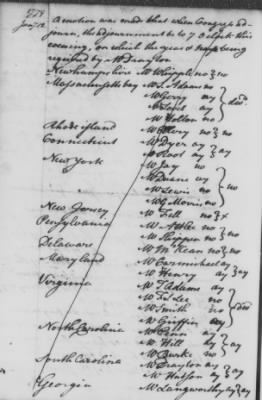 A motion was made that when Congress ad-
journ, the adjournment be to 7 O Clock this
evening, on which the yeas & nays being
required by Mr Drayton
Newhampshire Mr Whipple no } no
Massachusetts bay Mr S. Adams no
Mr Gerry ay
Mr Lovell ay
Mr Holten no } divd.
Rhode island Mr Ellery no } no
Connecticut Mr Dyer ay
Mr Root ay } ay
New York Mr Jay no
Mr Duane ay
Mr Lewis no
Mr G Morris no } no
New Jersey Mr Fell no } x
Pensylvania Mr Atlee no
Mr Shippen no } no
Delaware Mr M Kean no } no
Maryland Mr Carmichael ay
Mr Henry ay } ay
Virginia Mr T Adams ay
Mr F L Lee no
Mr Smith no
Mr Griffin ay } divd
North Carolina Mr Penn ay
Mr Hill ay
Mr Burke no } ay
South Carolina Mr Drayton ay
Mr Hutson ay } ay
Georgia Mr Langworthy ay } ay